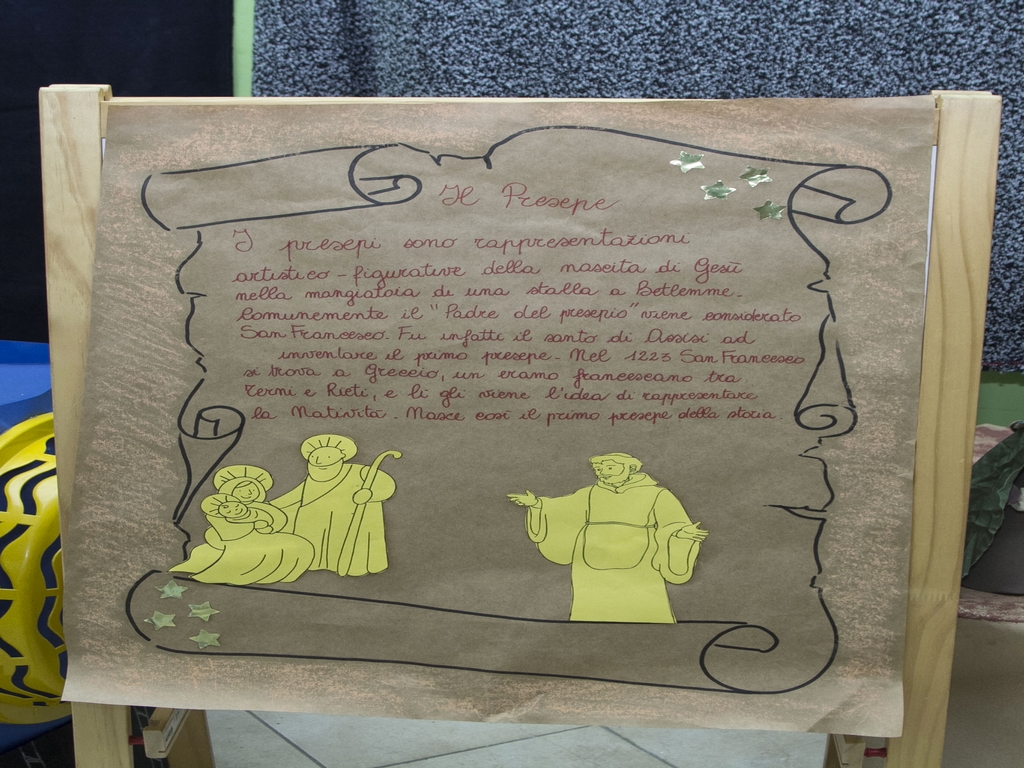 Il Presepe
I presepi sono rappresentazioni
artistico-figurative della nascita di Gesù
nella mangiatoia di una stalla a Betlemme.
Comunemente il "Padre del presepio" viene considerato
San Francesco. Fu infatti il santo di Assisi ad
inventare il primo presepe. Nel 1223 San Francesco
si trova a Greccio, un eramo francescano tra
Terni e Rieti, e lì gli viene l'idea di rappresentare
la Natività. Nasce così il primo presepe della storia.